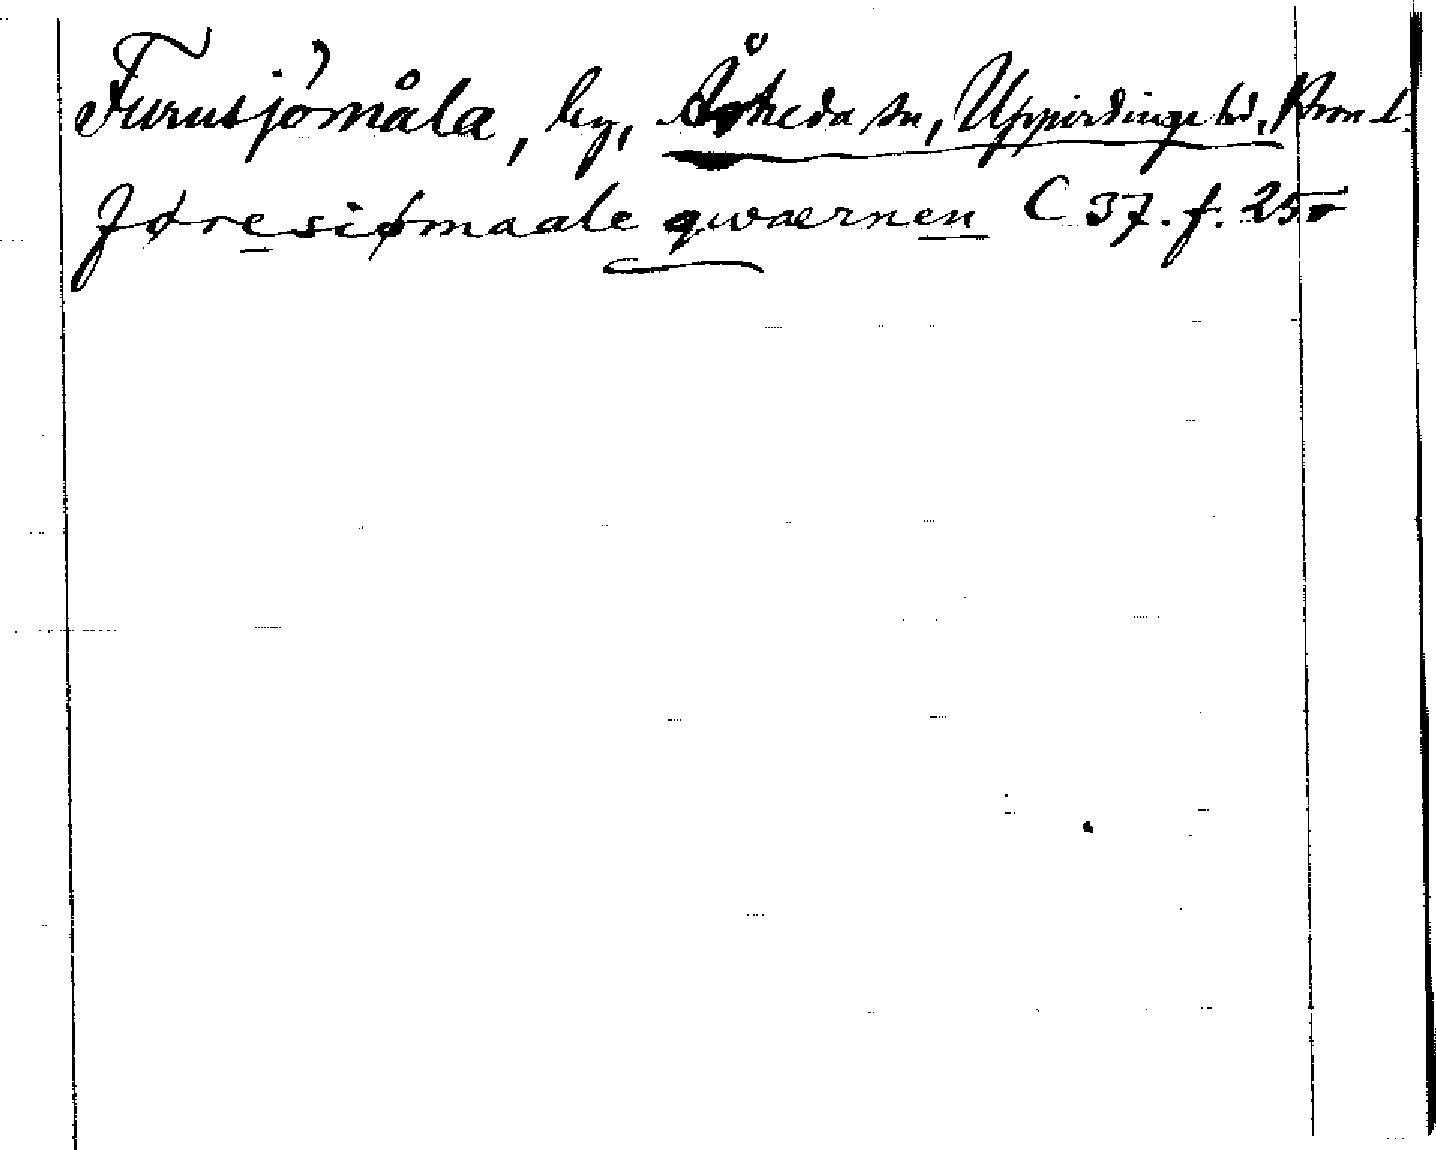 Furusjömåla, by, Åsheda sn, Uppvidinge hd, Kron. L.
Jøresiømaale qwaernen C 37. f. 25